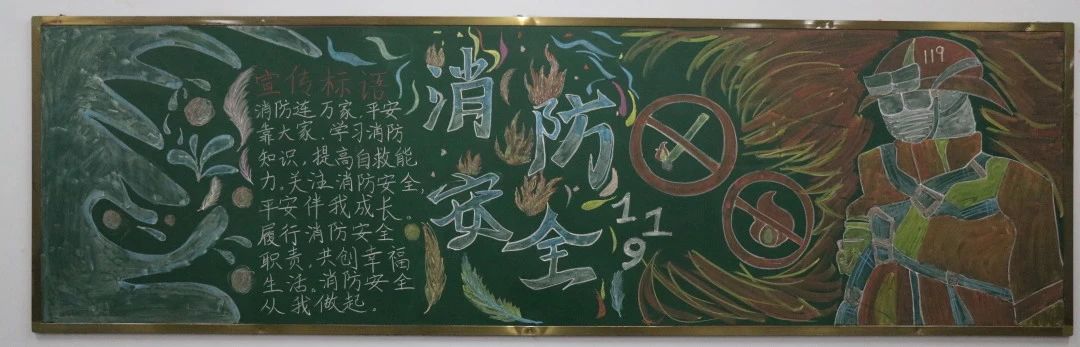 宣传标语
消防连万家,平安
靠大家,学习消防
知识,提高自救能
力,关注消防安全,
平安伴我成长。
履行消防安全
职责,共创幸福
生活。消防安全
从我做起。
消防
安全
119
119